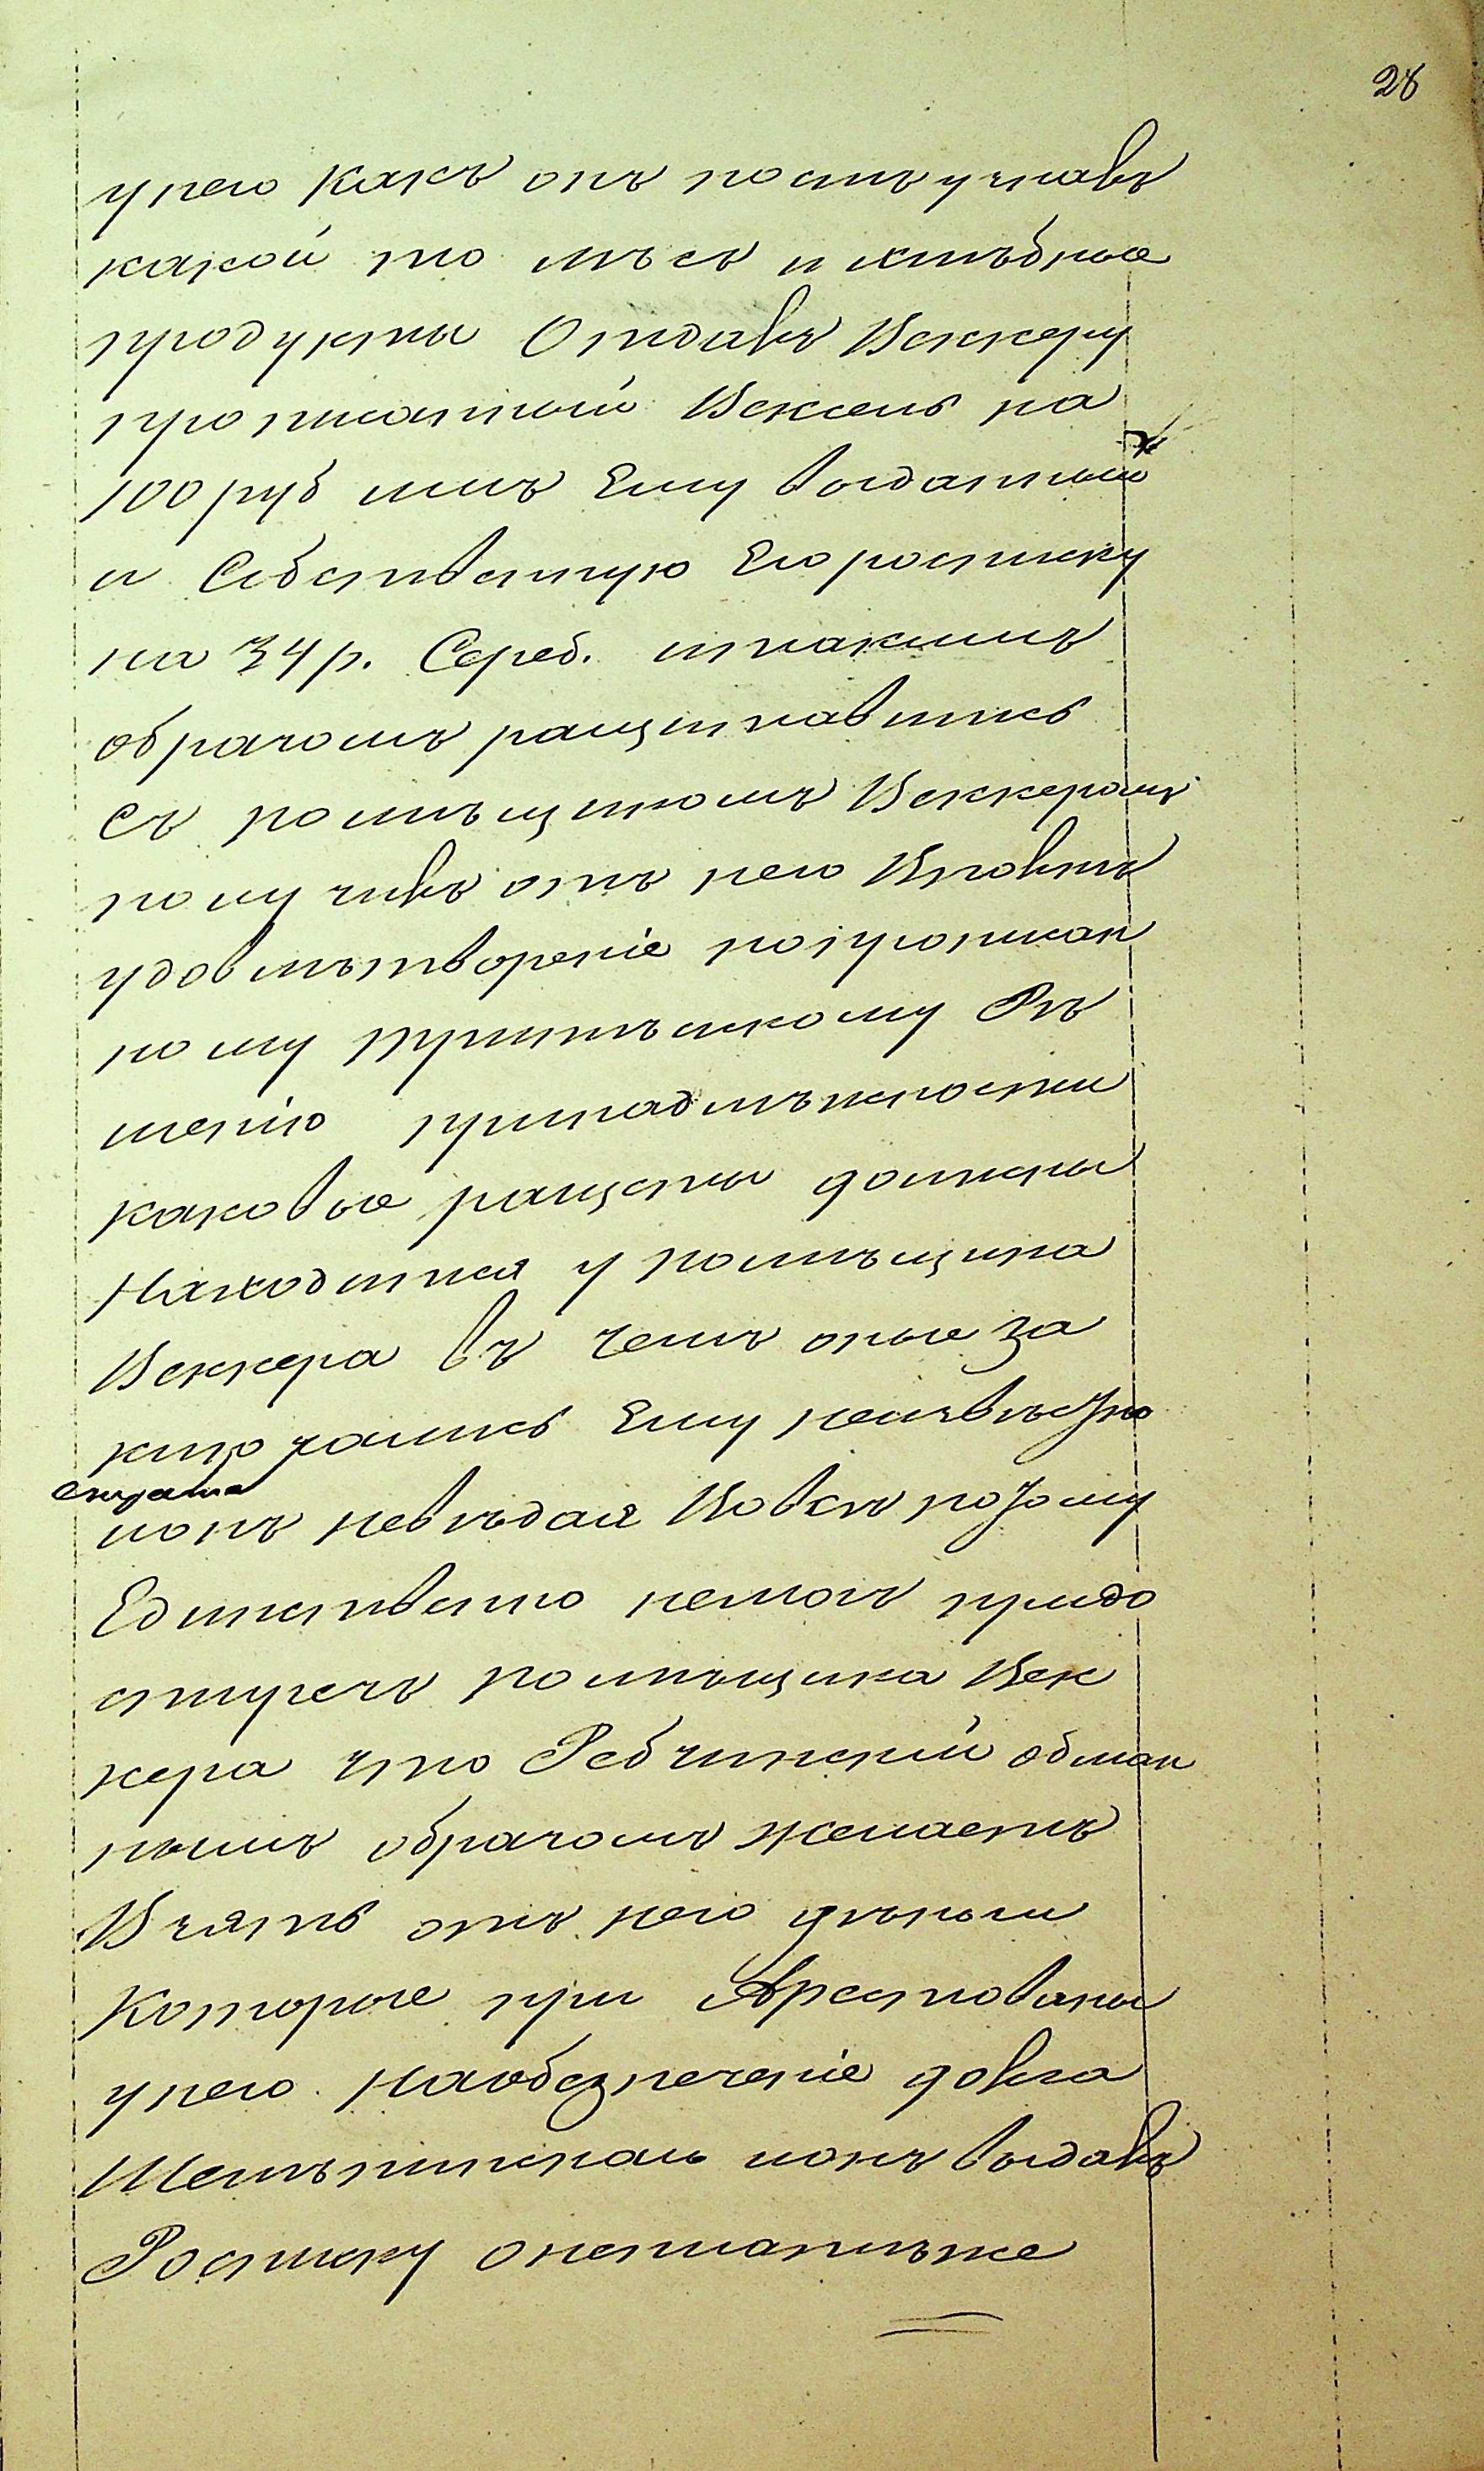 28
унего какъ онъ постъ узнавъ
какой то лѣсъ и хлѣбные
продукты Отдавъ Веккеру
прописанный Вексель на
100 руб имъ Ему выданный
и Собственную Его росписку
на 34 р. Сереб. итакимъ
образомъ ращитавшись
съ помѣщикомъ Веккеромъ
получивъ отъ него Вповнѣ
удовлѣтвореніе попрописан
ному притѣльскому Рѣ
шенію принадлѣжности
каковые ращеты должны
Находится у помѣщика
Веккера въ чемъ оные за
ключались Ему неизвѣстно
ионъ невѣдая Вовсе потому
Единственно немогъ предо
стеречъ помѣщика Век
кера что Ребчинскій обман
нымъ образомъ желаетъ
Взять отъ него деньги
Которые при Арестованы
унего Наобезпеченіе довга
ионъ выдавъ
Росписку